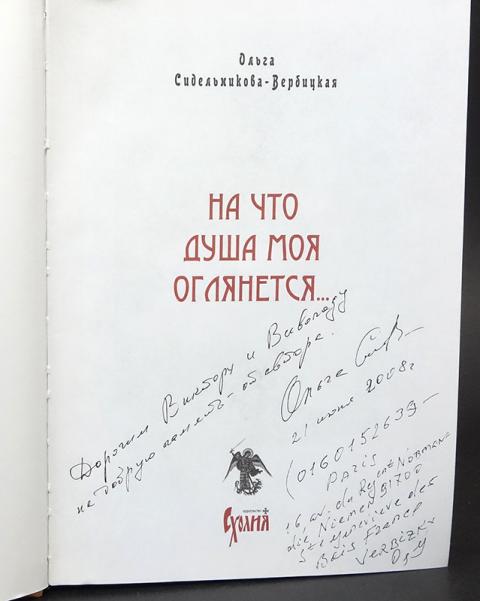 Ольга
Сидельникова-Вербицкая
НА ЧТО
ДУША МОЯ
ОГЛЯНЕТСЯ...
Дорогим Виктору и
на добрую память - от автора.
Ольга
21 июня 2008г
(0160152639-
PARIS
16, av. du Régt Normandie
Niemen 91700
Ste Geneviève des
Bois France
VERBIZKY
издательство
Схолия